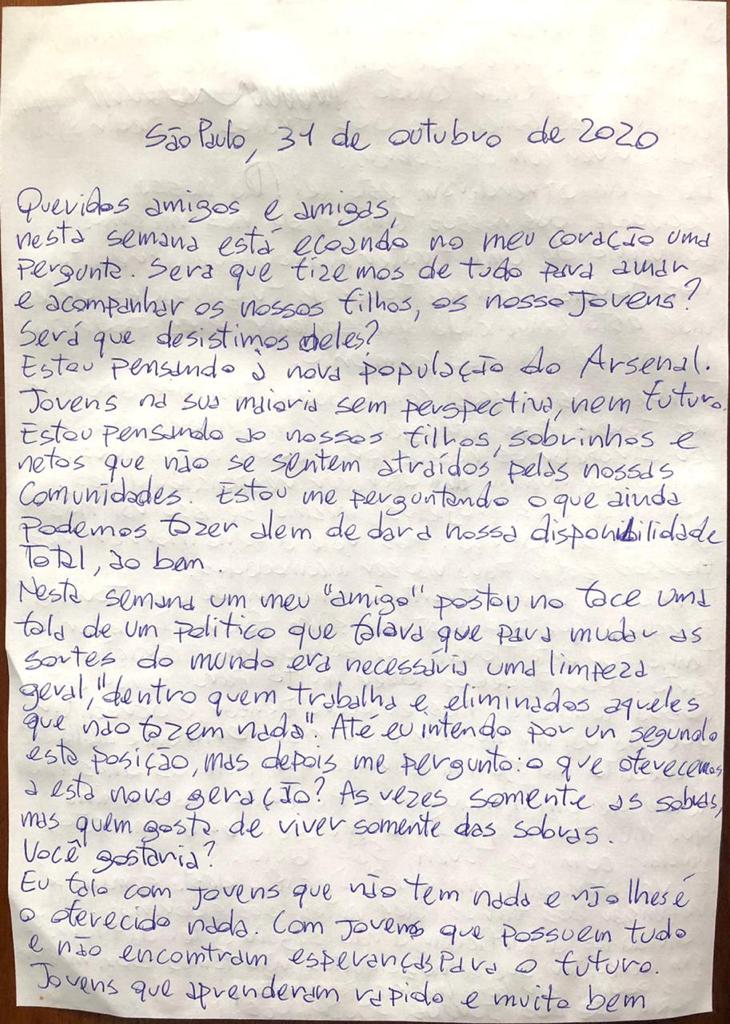 São Paulo, 31 de outubro de 2020
Queridos amigos e amigas,
nesta semana está ecoando no meu coração uma
pergunta. Sera que fizemos de tudo para amar
e acompanhar os nossos filhos, os nosso Jovens?
Será que desistimos deles?
Estou pensando à nova população do Arsenal.
Jovens na sua maioria sem perspectiva, nem futuro.
Estou pensando ao nossos filhos, sobrinhos e
netos que não se sentem atraídos pelas nossas
Comunidades. Estou me perguntando o que ainda
Podemos fazer alem de dar a nossa disponibilidade
Total, ao bem.
Nesta semana um meu "amigo" postou no face uma
fala de um politico que falava que para mudar as
sortes do mundo era necessária uma limpeza
geral, "dentro quem trabalha e eliminados aqueles
que não fazem nada". Até eu intendo por un segundo
esta posição, mas depois me pergunto: o que oferecemos
a esta nova geração? As vezes somente as sobras,
mas quem gosta de viver somente das sobras.
Você gostaria?
Eu falo com Jovens que não tem nada e não lhes é
o oferecido nada. Com Jovens que possuem tudo
e não encomtram esperanças Para o futuro.
Jovens que aprenderam rapido e muito bem